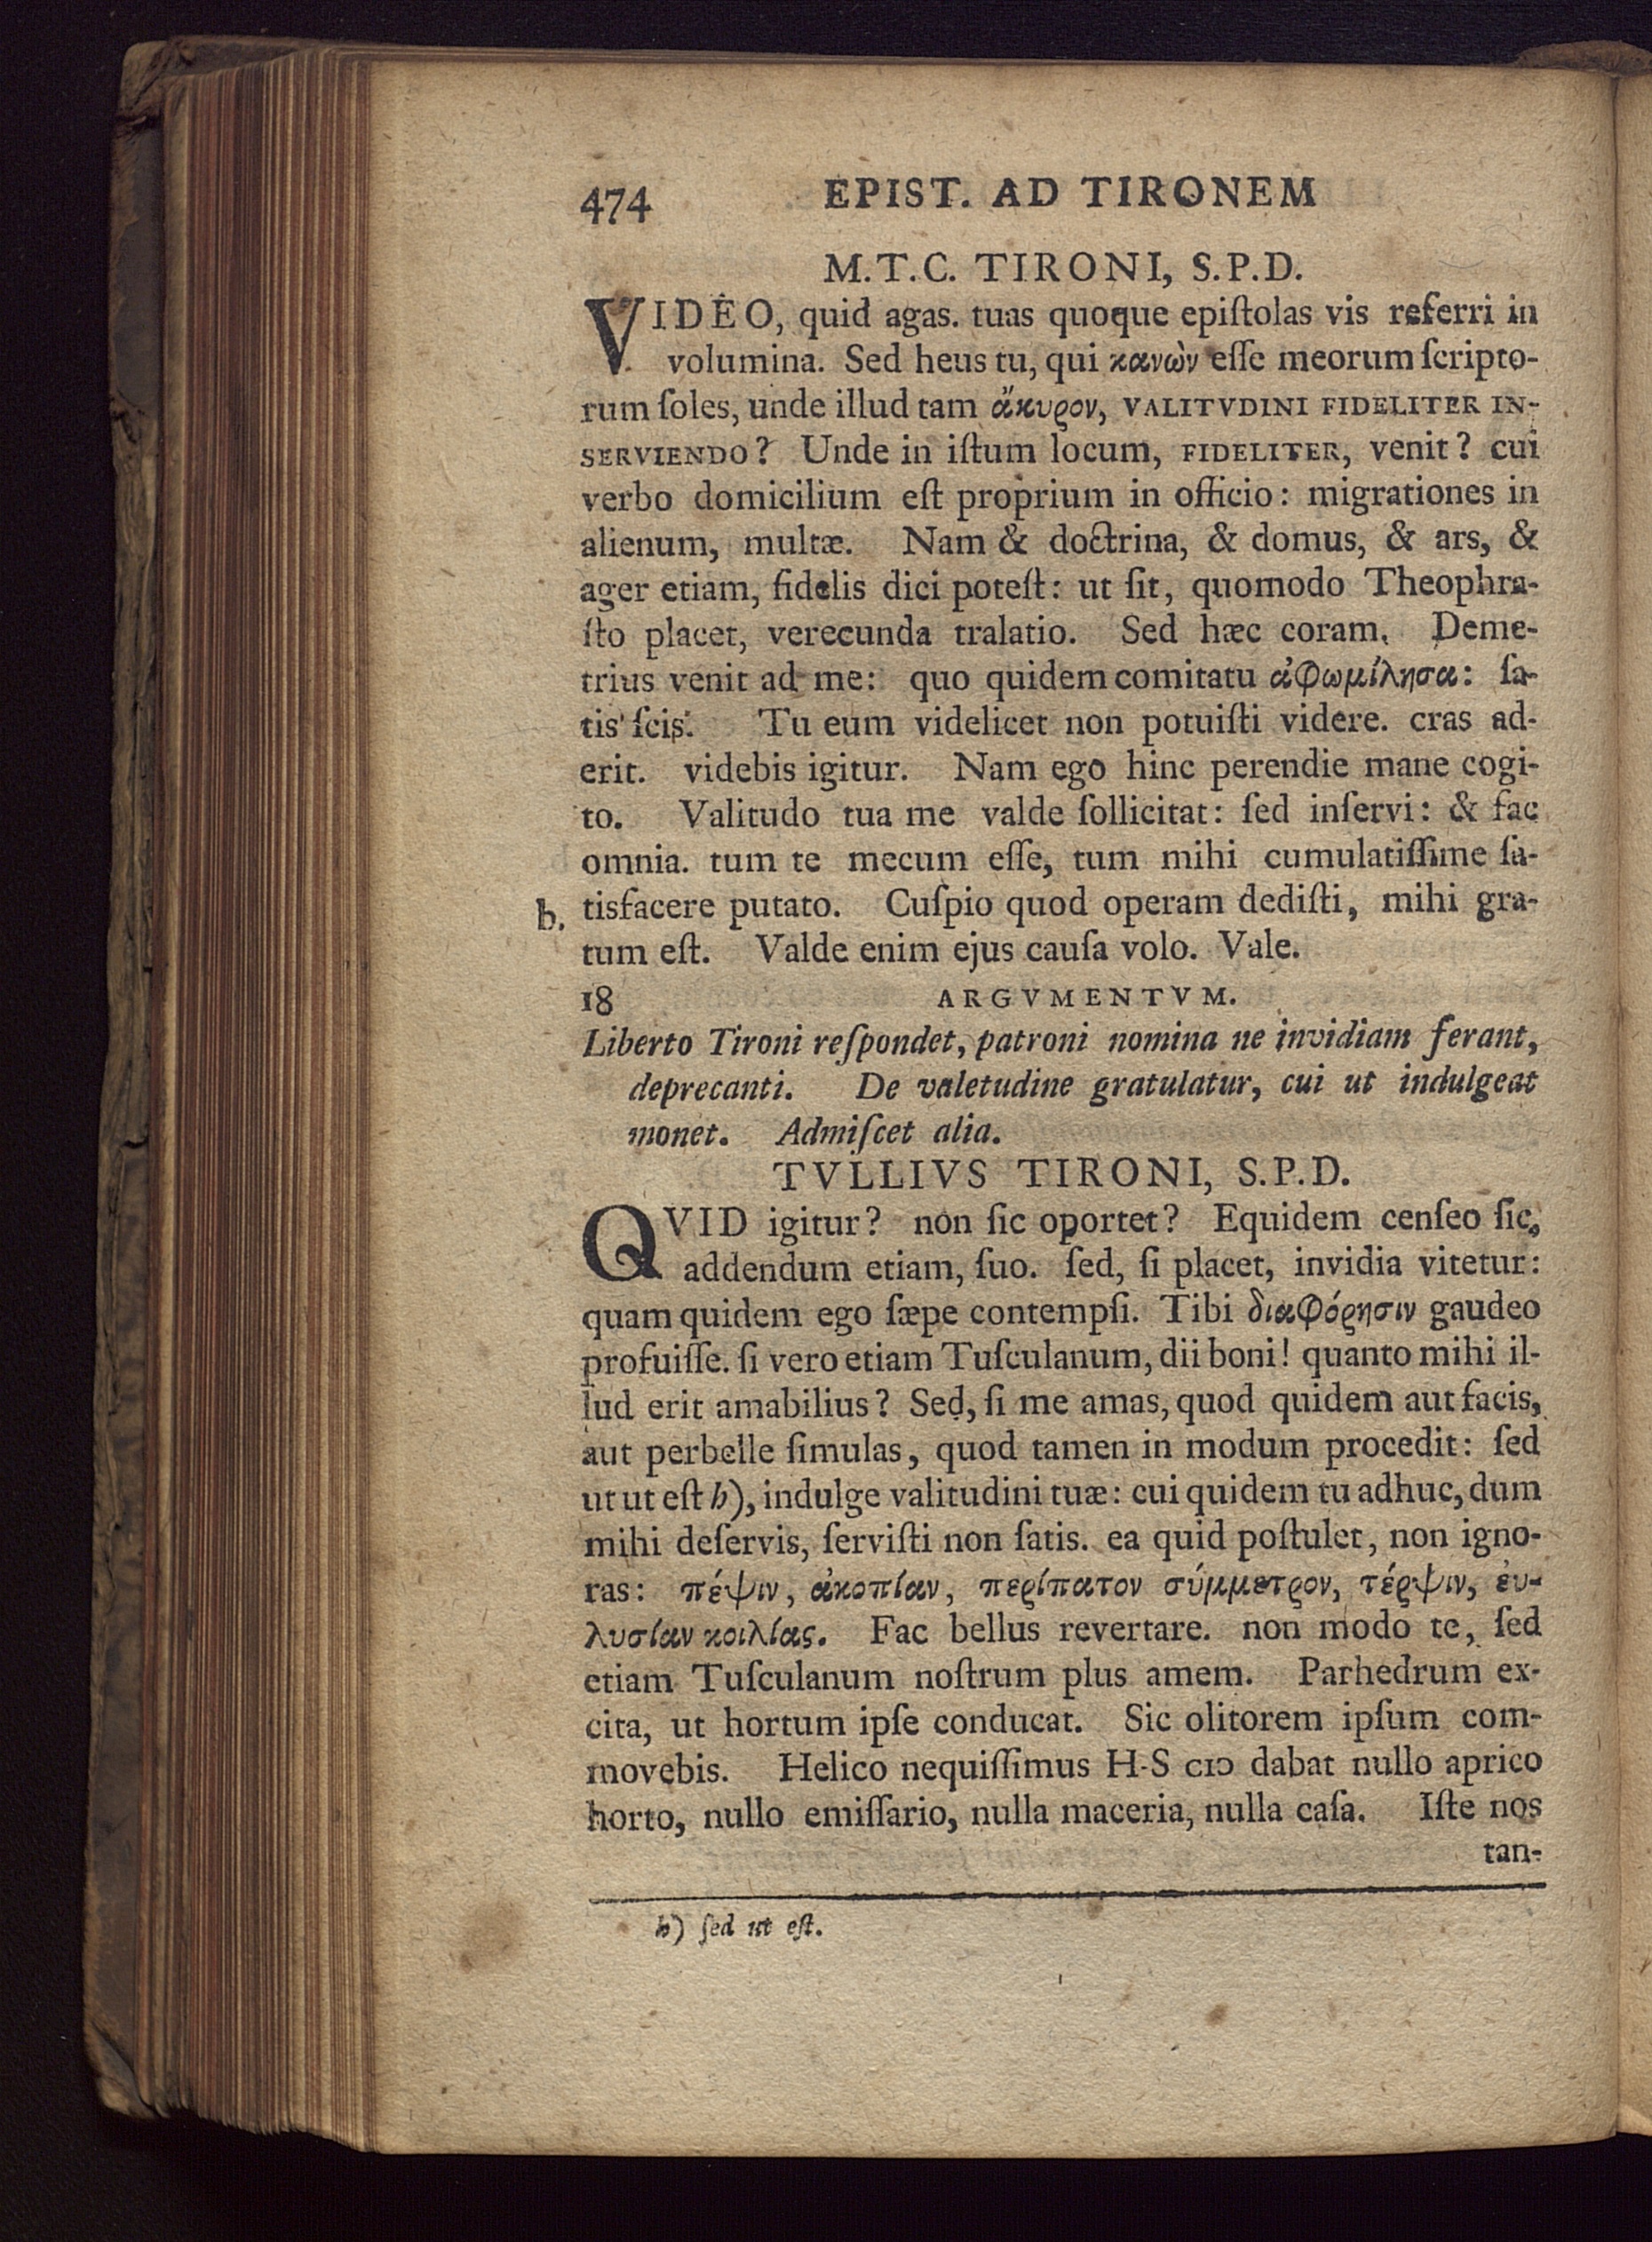 474 EPIST. AD TIRONEM
M.T.C. TIRONI, S.P.D.
VIDEO, quid agas. tuas quoque epiſtolas vis referri in
volumina. Sed heus tu, qui κανὼν eſſe meorum ſcripto-
rum ſoles, unde illud tam ἄκυρον, VALITVDINI FIDELITER IN-
SERVIENDO? Unde in iſtum locum, FIDELITER, venit? cui
verbo domicilium eſt proprium in officio: migrationes in
alienum, multæ. Nam & doctrina, & domus, & ars, &
ager etiam, fidelis dici poteſt: ut ſit, quomodo Theophra-
ſto placet, verecunda tralatio. Sed hæc coram. Deme-
trius venit ad me: quo quidem comitatu ἀφωμίλησα: ſa-
tis ſcis. Tu eum videlicet non potuiſti videre. cras ad-
erit. videbis igitur. Nam ego hinc perendie mane cogi-
to. Valitudo tua me valde ſollicitat: ſed inſervi: & fac
omnia. tum te mecum eſſe, tum mihi cumulatiſſime ſa-
b. tisfacere putato. Cuſpio quod operam dediſti, mihi gra-
tum eſt. Valde enim ejus cauſa volo. Vale.
18 ARGVMENTVM.
Liberto Tironi reſpondet, patroni nomina ne invidiam ferant,
deprecanti. De valetudine gratulatur, cui ut indulgeat
monet. Admiſcet alia.
TVLLIVS TIRONI, S.P.D.
QVID igitur? non ſic oportet? Equidem cenſeo ſic,
addendum etiam, ſuo. ſed, ſi placet, invidia vitetur:
quam quidem ego ſæpe contempſi. Tibi διαφόρησιν gaudeo
profuiſſe. ſi vero etiam Tuſculanum, dii boni! quanto mihi il-
lud erit amabilius? Sed, ſi me amas, quod quidem aut facis,
aut perbelle ſimulas, quod tamen in modum procedit: ſed
ut ut eſt h), indulge valitudini tuæ: cui quidem tu adhuc, dum
mihi deſervis, ſerviſti non ſatis. ea quid poſtulet, non igno-
ras: πέψιν, ἀκοπίαν, περίπατον σύμμετρον, τέρψιν, ἐυ-
λυσίαν κοιλίας. Fac bellus revertare. non modo te, ſed
etiam Tuſculanum noſtrum plus amem. Parhedrum ex-
cita, ut hortum ipſe conducat. Sic olitorem ipſum com-
movebis. Helico nequiſſimus H-S CIↃ dabat nullo aprico
horto, nullo emiſſario, nulla maceria, nulla caſa. Iſte nos
tan-
h) ſed ut eſt.